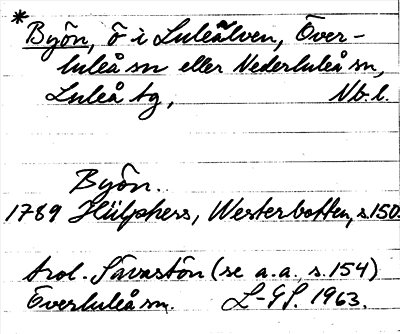 *
Byön, ö i Luleälven, Över-
luleå sn eller Nederluleå sn,
Luleå tg, Nb. l.
Byön.
1789 Hülphers, Westerbotten, s. 150.
trol. Sävastön (se a.a., s. 154)
Överluleå sn. L-GL. 1963.